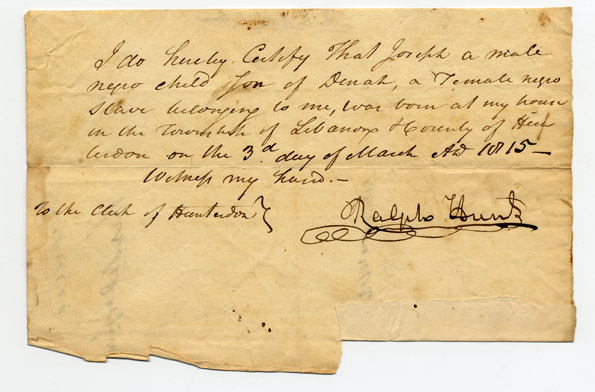 I do hereby Certify That Joseph a male
negro child Son of Dinah, a Female negro
slave belonging to me, was born at my house
in the Township of Lebanon & County of Hun
terdon on the 3d day of March AD 1815 —
Witness my hand. —
To the Clerk of Hunterdon }
Ralph Hunt